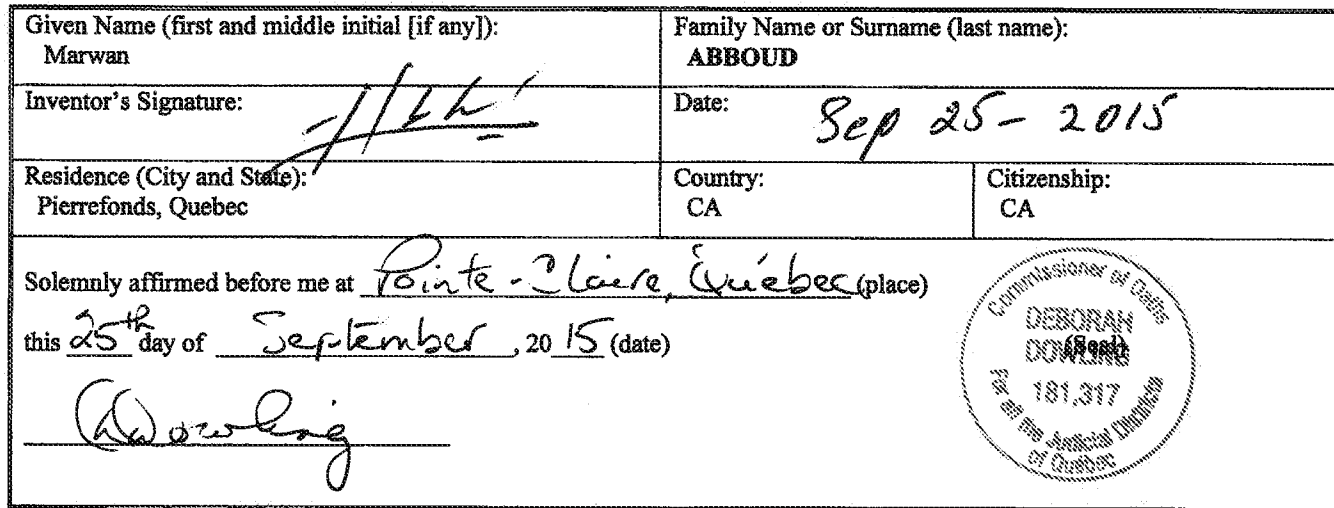 Given Name (first and middle initial [if any]):
Marwan
Family Name or Surname (last name):
ABBOUD
Inventor's Signature:
Date: Sep 25 - 2015
Residence (City and State):
Pierrefonds, Quebec
Country:
CA
Citizenship:
CA
Solemnly affirmed before me at Pointe-Claire, Québec (place)
this 25th day of September, 20 15 (date)
Dowling
Commissioner of Oaths
DEBORAH
DOWLING
(Seal)
181,317
For all the Judicial Districts
of Québec